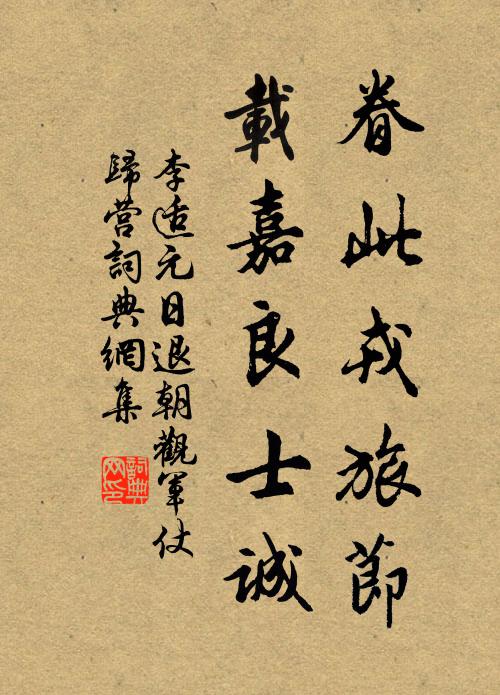 眷此戎旅節
載嘉良士誠
李适元日退朝觀軍仗
歸營詞典網集
詞典
网印